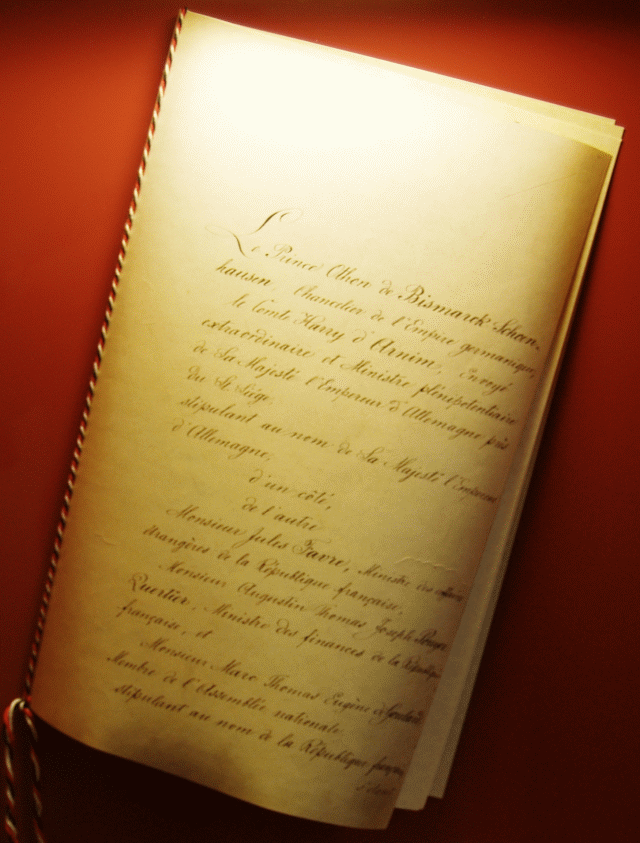 Le Prince Othon de Bismarck-Schoen-
hausen, Chancelier de l'Empire germanique,
le Comte Harry d'Arnim, Envoyé
extraordinaire et Ministre plénipotentiaire
de Sa Majesté l'Empereur d'Allemagne près
du St. Siége;
stipulant au nom de Sa Majesté l'Empereur
d'Allemagne,
d'un côté,
de l'autre
Monsieur Jules Favre, Ministre des affaires
étrangères de la République française,
Monsieur Augustin Thomas Joseph Pouyer
Quertier, Ministre des finances de la République
française, et
Monsieur Marc Thomas Eugène de Goulard,
Membre de l'Assemblée nationale
stipulant au nom de la République française,